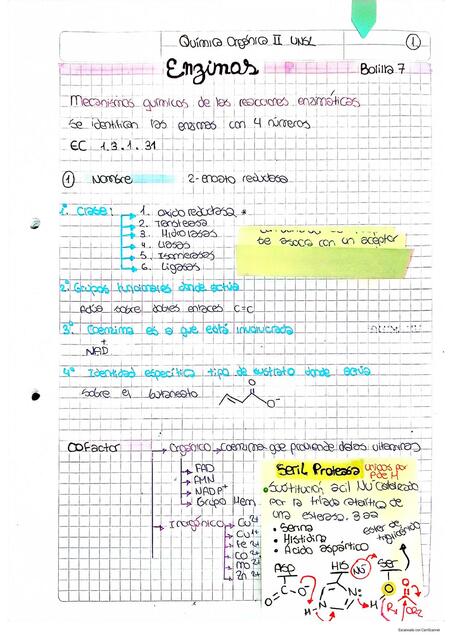 Química Orgánica II UNSL
1.
Enzimas
Bolilla 7
Mecanismos químicos de las reacciones enzimáticas
Se identifican las enzimas con 4 números
EC 1.3.1.31
1 Nombre 2-enoato reductasa
1º Clase:
1. oxido reductasa *
2.
3. Hidrolasas
4. Liasas
5. Isomerasas
6. Ligasas
se asocia con un aceptor
2º Grupos funcionales donde actúa
Actúa sobre dobles enlaces C=C
3º Coenzima es a que está involucrada
NAD+
4º Identidad específica tipo de sustrato donde actúa
sobre el butanoato
O
O-
COFactor
Orgánico coenzima que proviende datos vitaminas
FAD
FMN
NADP+
Grupo Hem
Inorgánico
Cu2+
Cu1+
Fe 2+
Co 2+
Mo 2+
Zn 2+
Seril Proteasa
unidos por
Pde H
Sustitución acil Nu Catalizada
por la triada catalítica de
una esterasa. 3 aa
• Serina
• Histidina
• Acido aspártico
ester de
triglicérido
ASP
HIS
Nu
Ser
O
C
O-
H
N
N:
H
O
R1
OR2
Escaneado con CamScanner